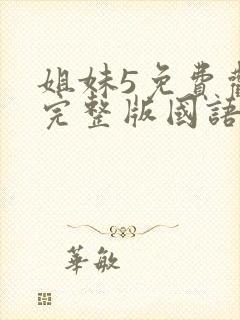 姐妹5免費觀
完整版國語
華敏